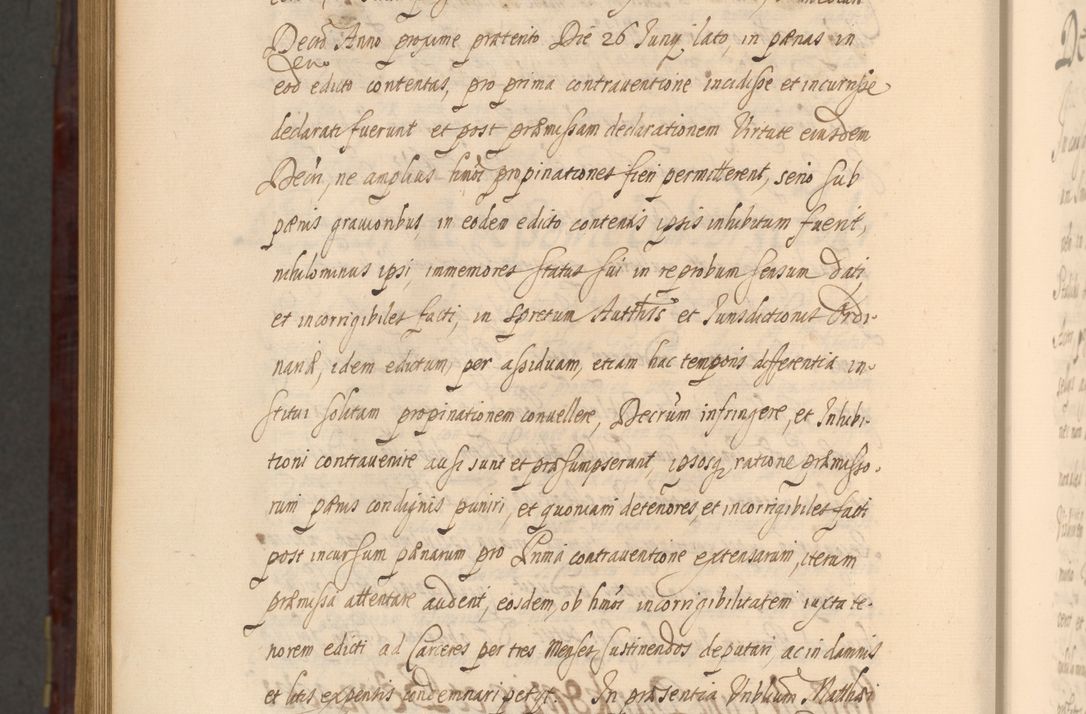 Decō Anno proxime præterito Die 26 Juny lato, in pænas in
eod edicto contentas, pro prima contrauentione incidisse et incurrisse
declarati fuerunt et post præmissam declarationem Virtute eiusdem
Decri, ne amplius hmōi propinationes fieri permitterent, serio sub
pænis grauioribus, in eodem edicto contentis ipsis inhibitum fuerit,
nihilominus ipsi, immemores status sui in reprobum sensum dati
et incorrigibiles facti, in spretum Autthtis et Jurisdictionis Ordi-
nariæ, idem edictum, per assiduam, etiam hac temporis differentia in-
stitui solitam propinationem conuellere, Decrum infringere, et Inhibi-
tioni contrauenire ausi sunt et præsumpserunt, ipsosq ratione præmisso-
rum pænis condignis puniri, et quoniam deteriores, et incorrigibiles facti
post incursum pænarum pro Prima contrauentione extensarum, iterum
præmissa attentare audent, eosdem, ob hmōi incorrigibilitatem iuxta te-
norem edicti ad Carceres per tres Menses sustinendos deputari, ac in damnis
et litis expensis condemnari petyt. In præsentia Matthæi